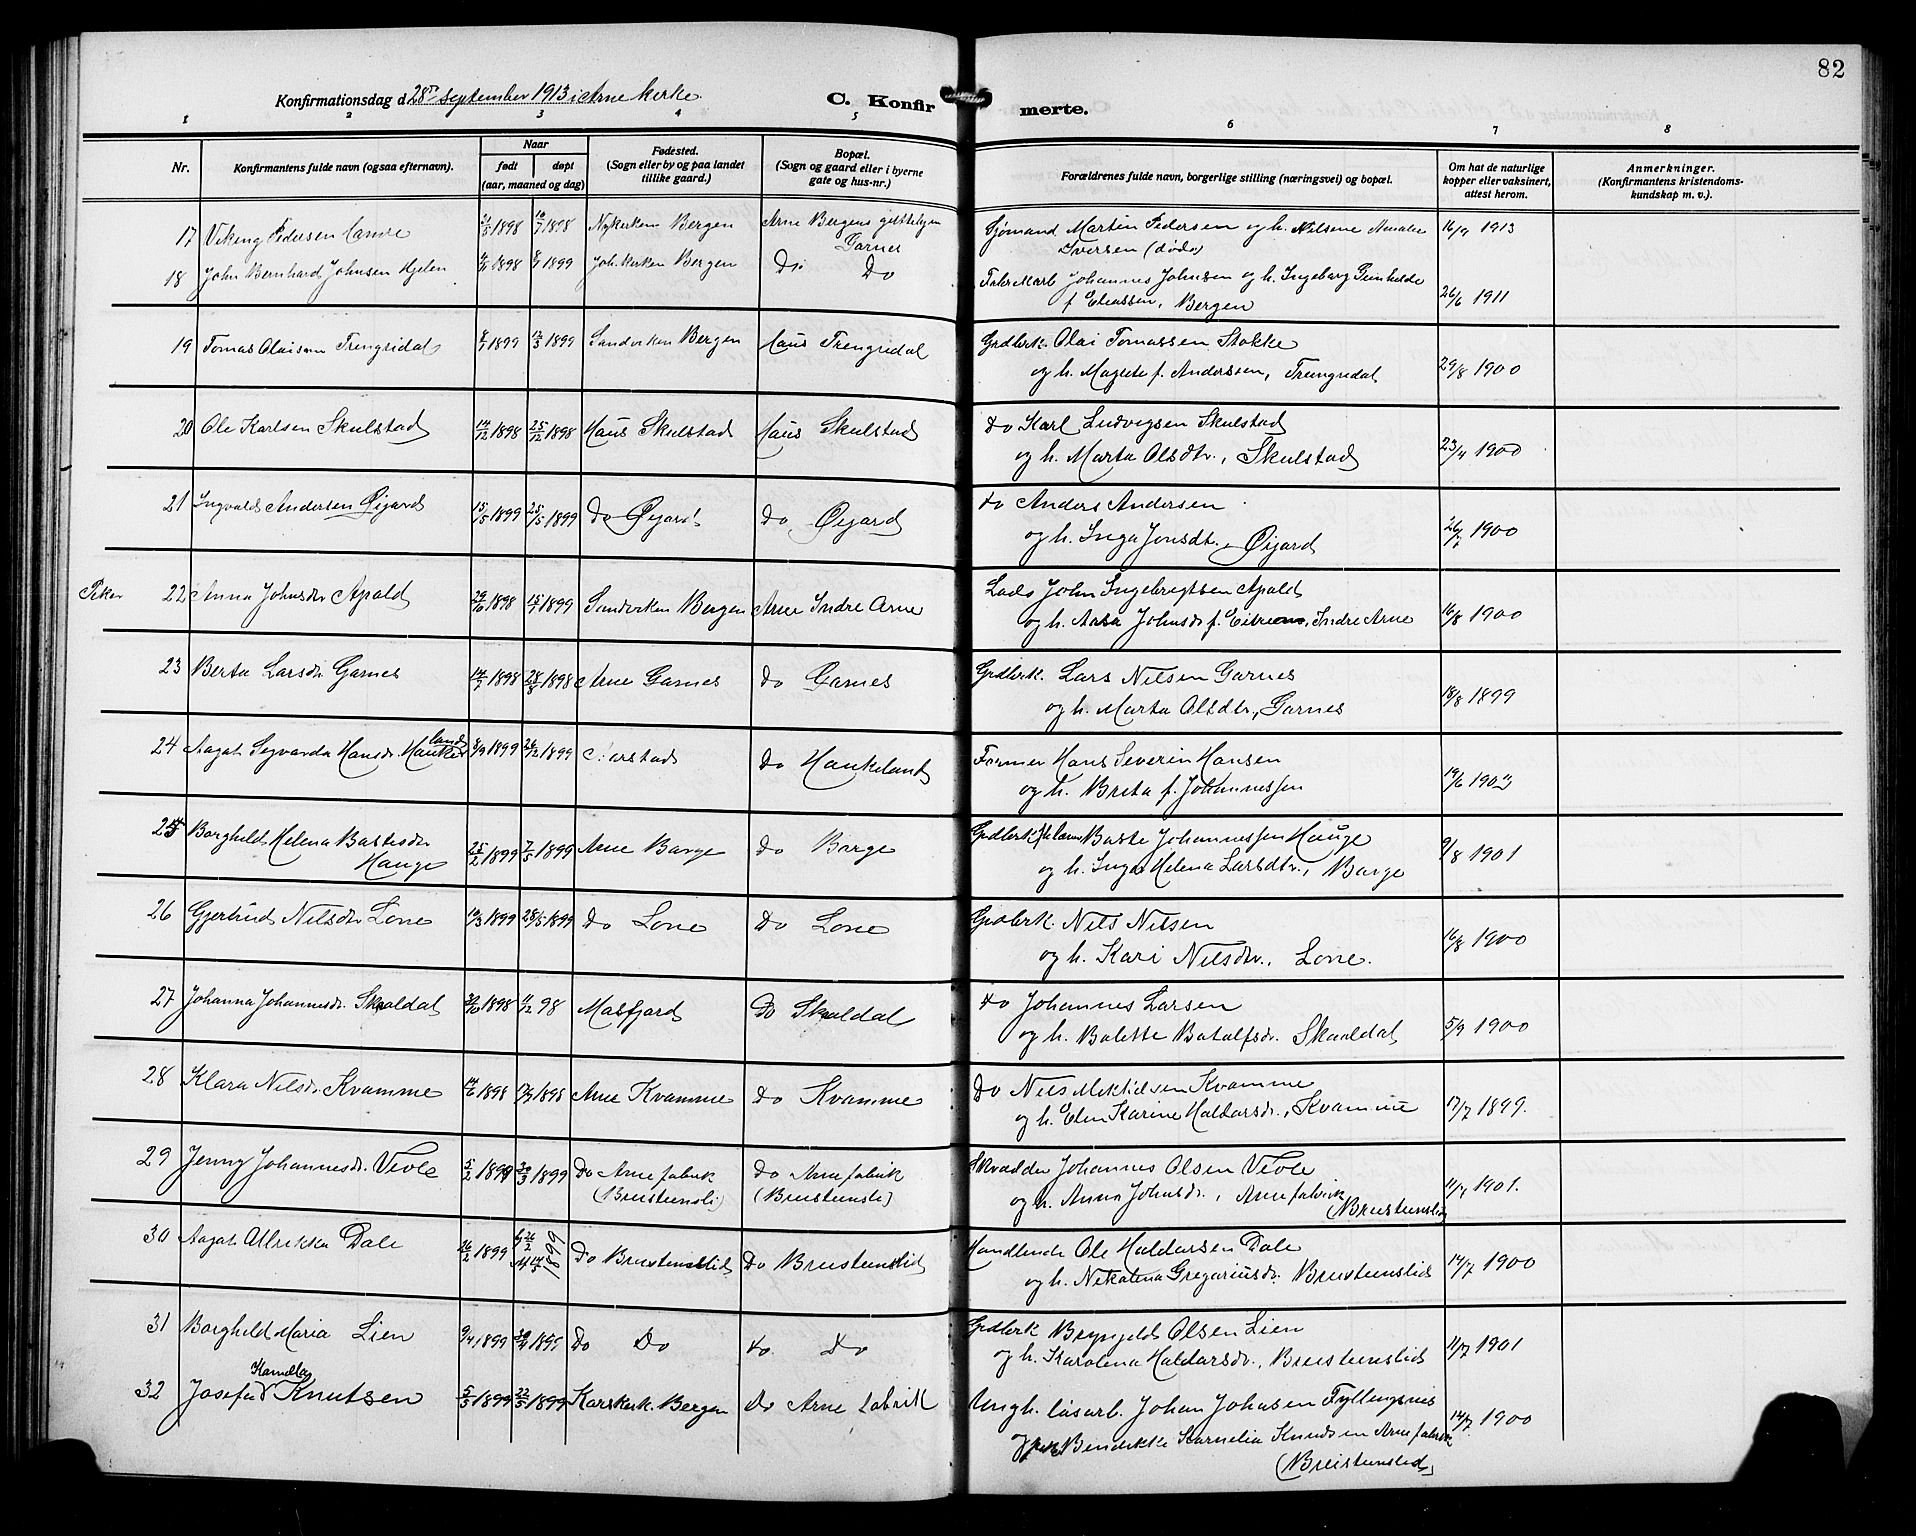 82
Konfirmationsdag d. 28de september 1913 i Arne kirke.
C. Konfirmerte.
1 2 3 4 5 6 7 8
Nr.
Konfirmantens fulde navn (ogsaa efternavn).
Naar
født døpt
(aar, maaned og dag)
Fødested.
(Sogn eller by og paa landet
tillike gaard.)
Bopæl.
(Sogn og gaard eller i byerne
gate og hus-nr.)
Forældrenes fulde navn, borgerlige stilling (næringsvei) og bopæl.
Om hat de naturlige
kopper eller vaksinert,
attest herom.
Anmerkninger.
(Konfirmantens kristendoms-
kundskap m. v.).
17 Viking Pedersen 1898 1898 Nykirken Bergen Arne Bergens guttehjem
Garnes
Sjømand Martin Pedersen og h. Nilsine Amalie
Iversen (døde) 16/9 1913
18 John Bernhard Johnsen Hjelen 1898 1899 Joh. kirken Bergen Do Do
Johannes Johnsen og h. Ingeborg
f. Eliassen, Bergen 26/6 1911
19 Tomas Olaisen Trengsidal 1899 1899 Sandviken Bergen Haus Trengsidal
Grdbrk. Olai Tomassen Stokke
og h. Magrete f. Anderssen, Trengsidal 29/8 1900
20 Ole Karlsen Skulstad 14/12 1898 25/12 1898 Haus Skulstad Haus Skulstad
do Karl Ludvigsen Skulstad
og h. Marta Olsdtr., Skulstad 23/4 1900
21 Ingvald Andersen Øigard 15/5 1899 25/5 1899 Do Øigard Do Øigard
do Anders Andersen
og h. Inga Jonsdtr., Øigard 1900
Piker 22 Anna Johnsdr Apold 1898 1899 Sandviken Bergen Arne Indre Arne
John Ingebrigtsen Apold
og h. Aasa Johnsdr f. Eitrem, Indre Arne 16/8 1900
23 Berta Larsdr Garnes 14/7 1898 28/8 1898 Arne Garnes Do Garnes
Grdbrk. Lars Nilsen Garnes
og h. Marta Olsdtr., Garnes 18/8 1899
24 Aagot Sigvarda Hansdr. Haukeland 1899 1899 Do Haukeland
Former Hans Severin Hansen
og h. Brita f. Johannessen 19/6
25 Borghild Helena Bastesdr
Hauge 25/2 1899 7/5 1899 Arne Borge Do Borge
Grdbrk. Baste Johannessen Hauge
og h. Inga Helena Larsdtr., Borge 9/8 1901
26 Gjertrud Nilsdr Lone 1899 28/5 1899 Do Lone Do Lone
Grdbrk. Nils Nilsen
og h. Kari Nilsdtr., Lone. 16/8 1900
27 Johanna Johannesdr. Skaaldal 1898 98 Masfjord Do Skaaldal
do Johannes Larsen
og h. Bolette Botolfsdr. Skaaldal 5/9 1900
28 Klara Nilsdr. Kvamme 14/6 1898 17/7 1898 Arne Kvamme Do Kvamme
Do Nils Kvamme
og h. Elen Karine Haldorsdr., Kvamme 17/7 1899.
29 Jenny Johannesdr. Vevle 5/2 1899 30/3 1899 Do Arne fabrik
(Breistensli) Do Arne fabrik
(Breistensli)
Skrædder Johannes Olsen Vevle
og h. Anna Johnsdr., Arne fabrik
(Breistenslid) 1901.
30 Aagot Alrikka Dale 16/2 1899 1899 Do Breistenslid Do Breistenslid
Handlende Ole Haldorsen Dale
og h. Nikolina Gregoriusdr. Breistenslid 14/7 1900
31 Borghild Maria Lien 9/4 1899 30/4 1899 Do Do do. Do
Grdbrk Brynjeld Olsen Lien
og h. Karolena Haldorsdr., Breistenslid 11/7 1901
32 Josefa Kornelia
Knutsen 5/5 1899 22/5 1899 Korskirk. Bergen Do Arne fabrik
Ungk. løsarb. Johan Johnsen Fyllingsnes
og Bendikke Kornelia Knudsen Arne fabrik
(Breistenslid) 14/7 1900